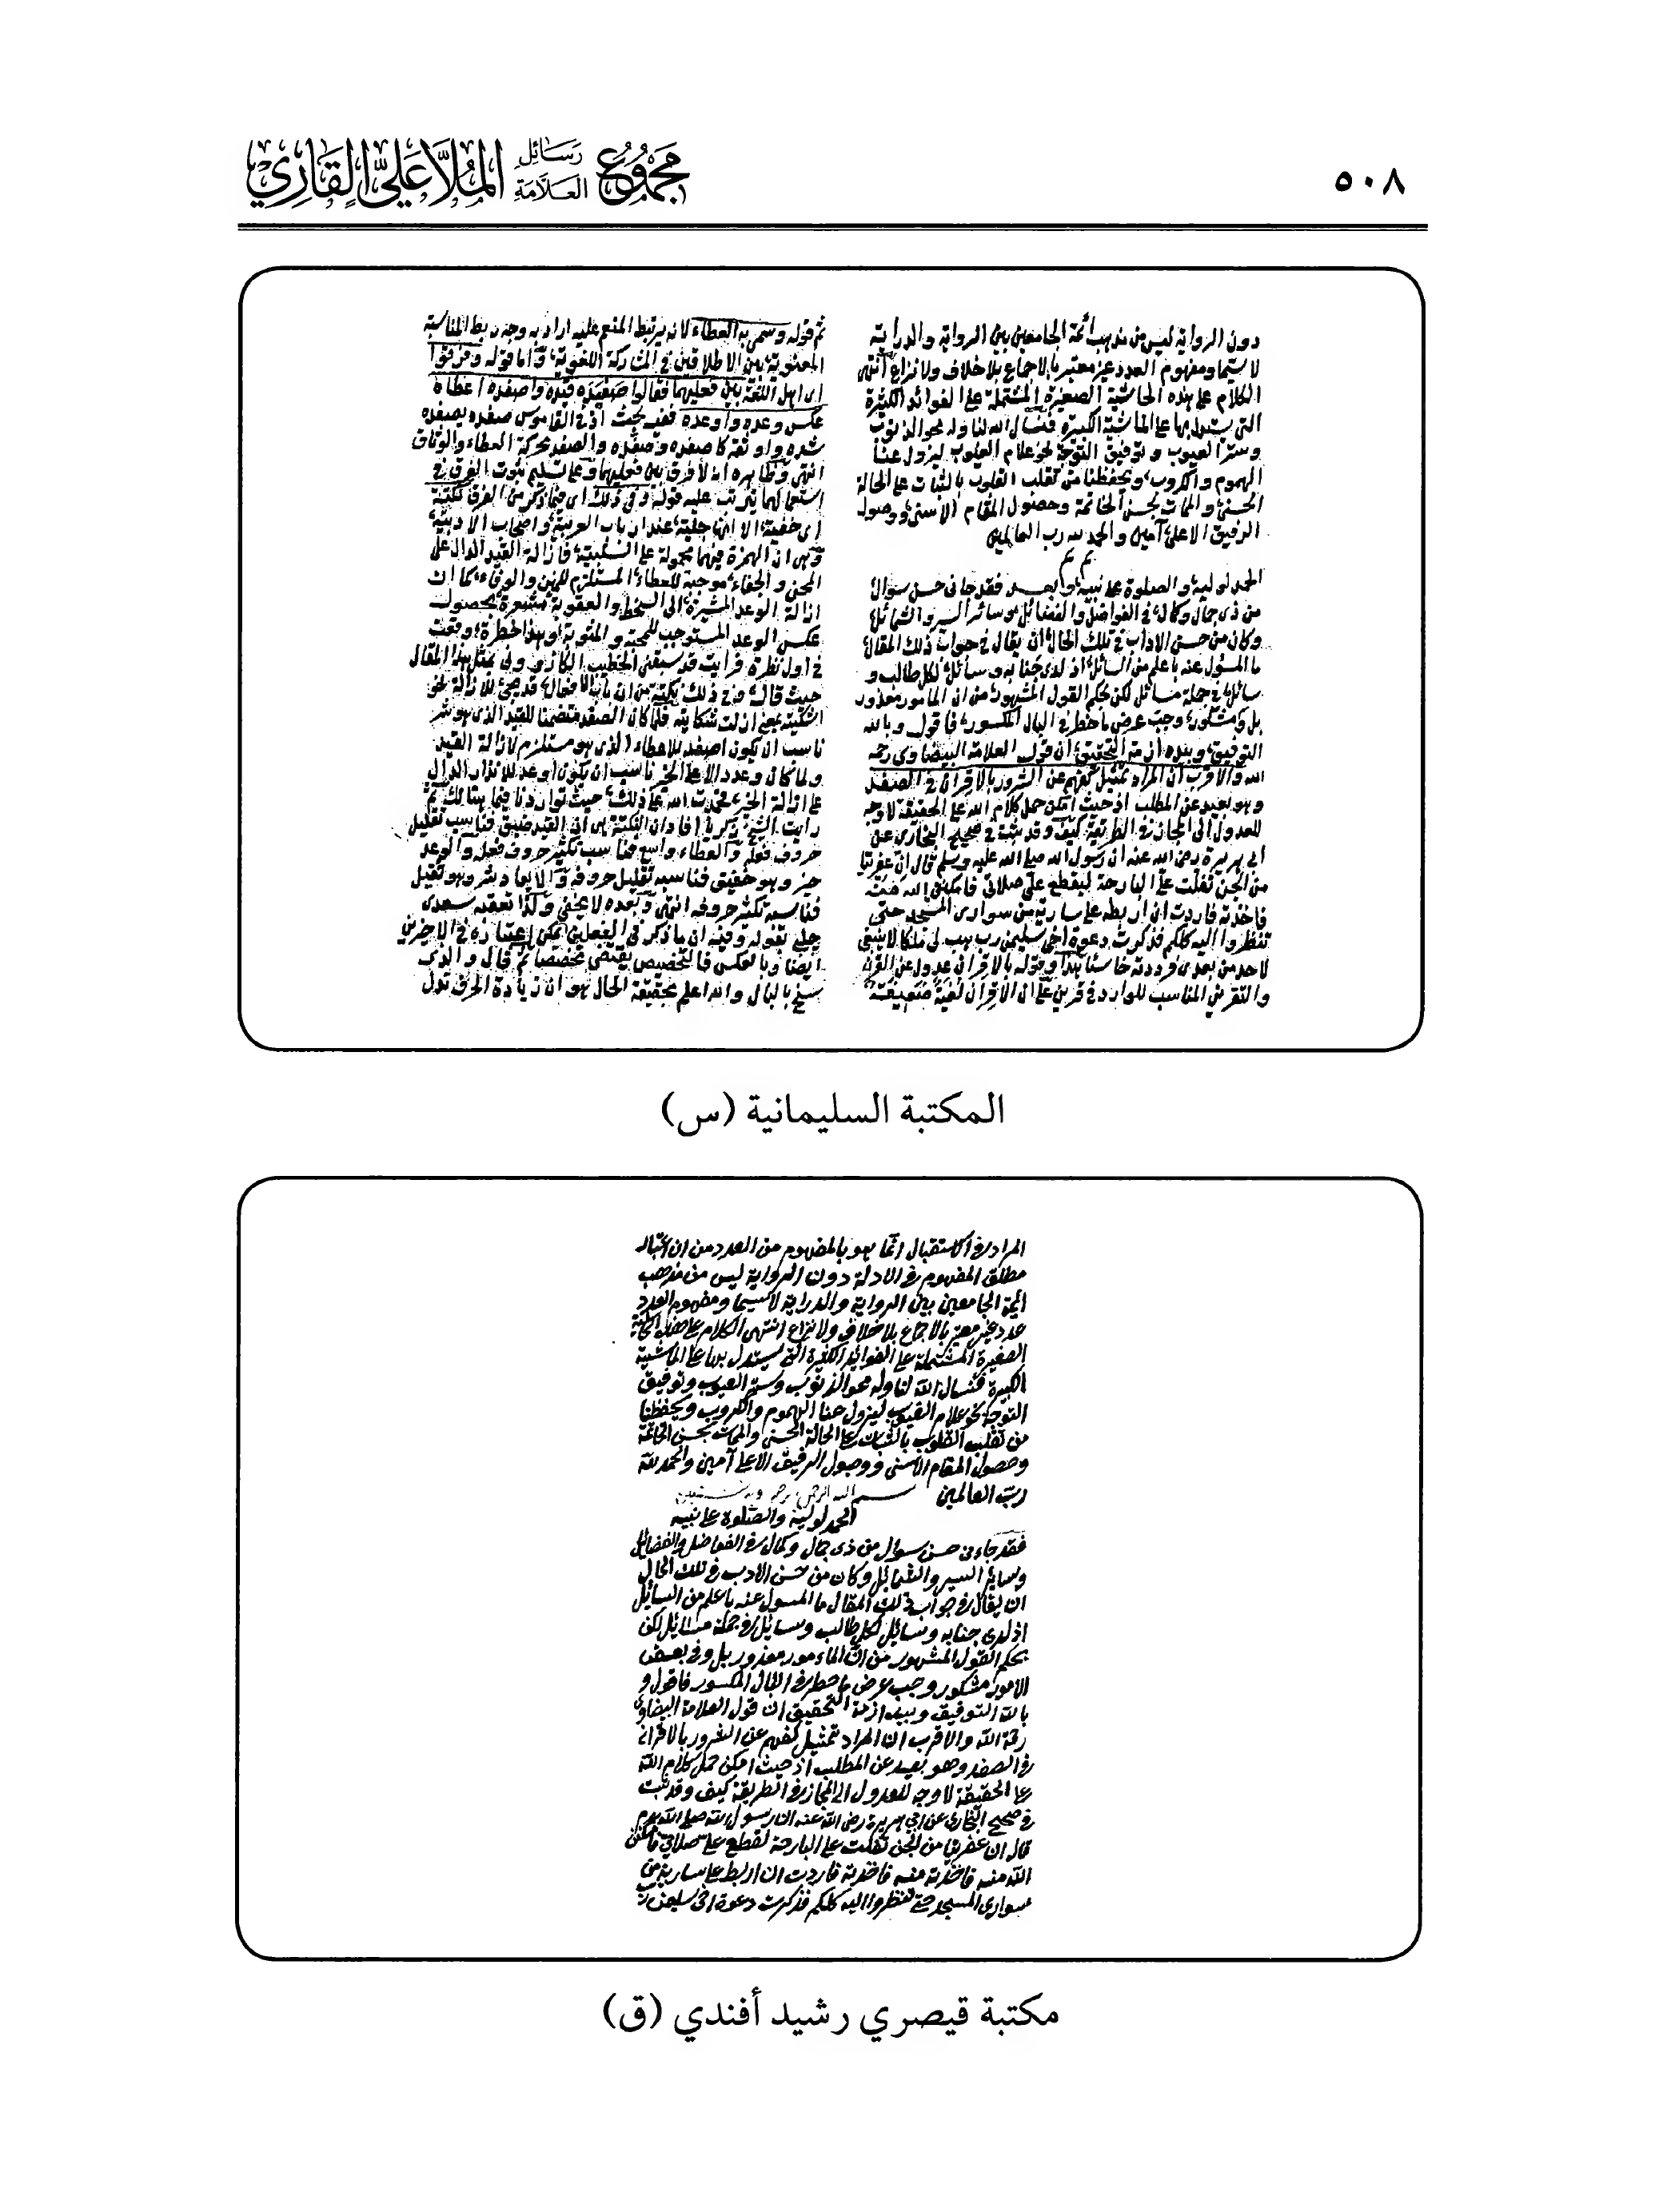 ٥٠٨
مجموع رسائل العلامة الملا علي القاري
دون الرواية ليس من مذهب أئمة الجامعين بين الرواية والدراية
لا سيما ومفهوم العدد غير معتبر بالاجماع بلا خلاف ولا نزاع انتهى
الكلام على هذه الحاشية الصغيرة المشتملة على الفوائد الكثيرة
التي يستدل بها على الحاشية الكبيرة فنسأل الله لنا وله محو الذنوب
وستر العيوب وتوفيق التوجه نحو علام الغيوب ليزول عنا
الهموم والكروب ويحفظنا من تقلب القلوب بالثبات على الحالة
الحسنى والممات بحسن الخاتمة وحصول المقام الاسنى ووصول
الرفيق الاعلى آمين والحمد لله رب العالمين
الحمد لوليه والصلوة على نبيه وبعد فقد جاءني حسن سوال
من ذي جمال وكمال في الفواضل والفضائل وسائر السير والشمائل
وكان من حسن الاداب في تلك الحال ان يقال في جواب ذلك المقال
ما المسئول عنه باعلم من السائل اذ لدى جنابه وسائل لكل طالب و
سائل في جملة مسائل لكن بحكم القول المشهور من ان المامور معذور
بل ومشكور وجب عرض ما خطر في البال المكسور فاقول وبالله
التوفيق وبيده ازمة التحقيق ان قول العلامة البيضاوي رحمه
الله والاقرب ان المراد تمثيل كفهم عن الشرور بالاقران في الصفد
وهو بعيد عن المطلب اذ حيث امكن حمل كلام الله على الحقيقة لا وجه
للعدول الى المجاز في الطريقة كيف وقد ثبت في صحيح البخاري عن
ابي هريرة رضي الله عنه ان رسول الله صلى الله عليه وسلم قال ان عفريتا
من الجن تفلت علي البارحة ليقطع علي صلاتي فامكنني الله منه
فاخذته فاردت ان اربطه على سارية من سواري المسجد حتى
تنظروا اليه كلكم فذكرت دعوة اخي سليمن رب هب لي ملكا لا ينبغي
لاحد من بعدي فرددته خاسئا هذا وقوله بالاقران عدول عن القرن
والتقرين المناسب للوارد في قرين على ان الاقران لغة ضعيفة
ثم قوله وسمي به العطاء لانه يرتبط المنعم عليه اراد به وجه ربط المناسبة
المعنوية بين الاطلاقين في المشاركة اللغوية واما قوله وفرقوا
اي اهل اللغة بين فعليهما فقالوا صفده قيده واصفده اعطاه
عكس وعده واوعده ففيه بحث اذ في القاموس صفده يصفده
شده واوثقه كاصفده وصفده والصفد محركة العطاء والوثاق
انتهى وظاهره انه لا فرق بين فعليهما وعلى تسليم ثبوت الفرق في
استعمالهما يترتب عليه قوله وفي ذلك اي فيما ذكر من الفرق نكتة
اي خفية الا انها جلية عند ارباب العربية واصحاب الادبية
وهي ان الهمزة فيهما محمولة على السلبية فازالة القيد الدال على
عكس الوعد المستوجب للمحبة والمثوبة وبهذا الخطرة وقعت
في اول نظرة فرايت قد سبقني الخطيب الكازروني بمثل هذا المقال
حيث قال وفي ذلك نكتة من ان باب الافعال قد يجئ للازالة نحو
اشكيته بمعنى ازلت شكايته فلما كان الصفد متضمنا للقيد الذي هو شر
ناسب ان يكون اصفد للاعطاء الذي هو مستلزم لازالة القيد
ولما كان وعد دالا على الخير ناسب ان يكون اوعد للانذار الدال
على ازالة الخير فحمدت الله على ذلك حيث تواردنا فيما هنالك ثم
رايت الشيخ زكريا افاد ان النكتة هي ان القيد ضيق فناسب تقليل
حروف فعله والعطاء واسع فناسب تكثير حروف فعله والوعد
خير وهو خفيف فناسبه تقليل حروفه والايعاد شر وهو ثقيل
فناسبه تكثير حروفه انتهى وبعده لا يخفى ولذا تعقبه سعدي
جلبي بقوله وفيه ان ما ذكر في الفعلين يمكن اعتباره في الاخيرين
ايضا وبالعكس فالتخصيص يقتضي مخصصا ثم قال والذي
سنح بالبال والله اعلم بحقيقة الحال هو ان زيادة الحرف تدل
المكتبة السليمانية (س)
المراد في الاستقبال انما هو بالمفهوم من العدد من ان اعتبار
مطلق المفهوم في الادلة دون الرواية ليس من مذهب
ائمة الجامعين بين الرواية والدراية لاسيما ومفهوم العدد
عدد غير معتبر بالاجماع بلا خلاف ولا نزاع انتهى الكلام على هذه الحاشية
الصغيرة المشتملة على الفوائد الكثيرة التي يستدل بها على الحاشية
الكبيرة فنسال الله لنا وله محو الذنوب وستر العيوب وتوفيق
التوجه نحو علام الغيوب ليزول عنا الهموم والكروب ويحفظنا
من تقلب القلوب بالثبات على الحالة الحسنى والممات بحسن الخاتمة
وحصول المقام الاسنى ووصول الرفيق الاعلى آمين والحمد لله
رب العالمين بسم الله الرحمن الرحيم وبه نستعين
الحمد لوليه والصلوة على نبيه
فقد جاءني حسن سوال من ذي جمال وكمال في الفواضل والفضائل
وسائر السير والشمائل وكان من حسن الادب في تلك الحال
ان يقال في جواب ذلك المقال ما المسول عنه باعلم من السايل
اذ لدى جنابه وسائل لكل طالب وسايل في جملة مسائل لكن
بحكم القول المشهور من ان المامور معذور بل وفي بعض
الامور مشكور وجب عرض ما خطر في البال المكسور فاقول و
بالله التوفيق وبيده ازمة التحقيق ان قول العلامة البيضاوي
رحمه الله والاقرب ان المراد تمثيل كفهم عن الشرور بالاقران
في الصفد وهو بعيد عن المطلب اذ حيث امكن حمل كلام الله
على الحقيقة لا وجه للعدول الى المجاز في الطريقة كيف وقد ثبت
في صحيح البخاري عن ابي هريرة رضي الله عنه ان رسول الله صلى الله عليه وسلم
قال ان عفريتا من الجن تفلت علي البارحة ليقطع علي صلاتي فامكنني
الله منه فاخذته منه فاخذته فاردت ان اربط على سارية من
سواري المسجد حتى تنظروا اليه كلكم فذكرت دعوة اخي سليمن رب
مكتبة قيصري رشيد أفندي (ق)